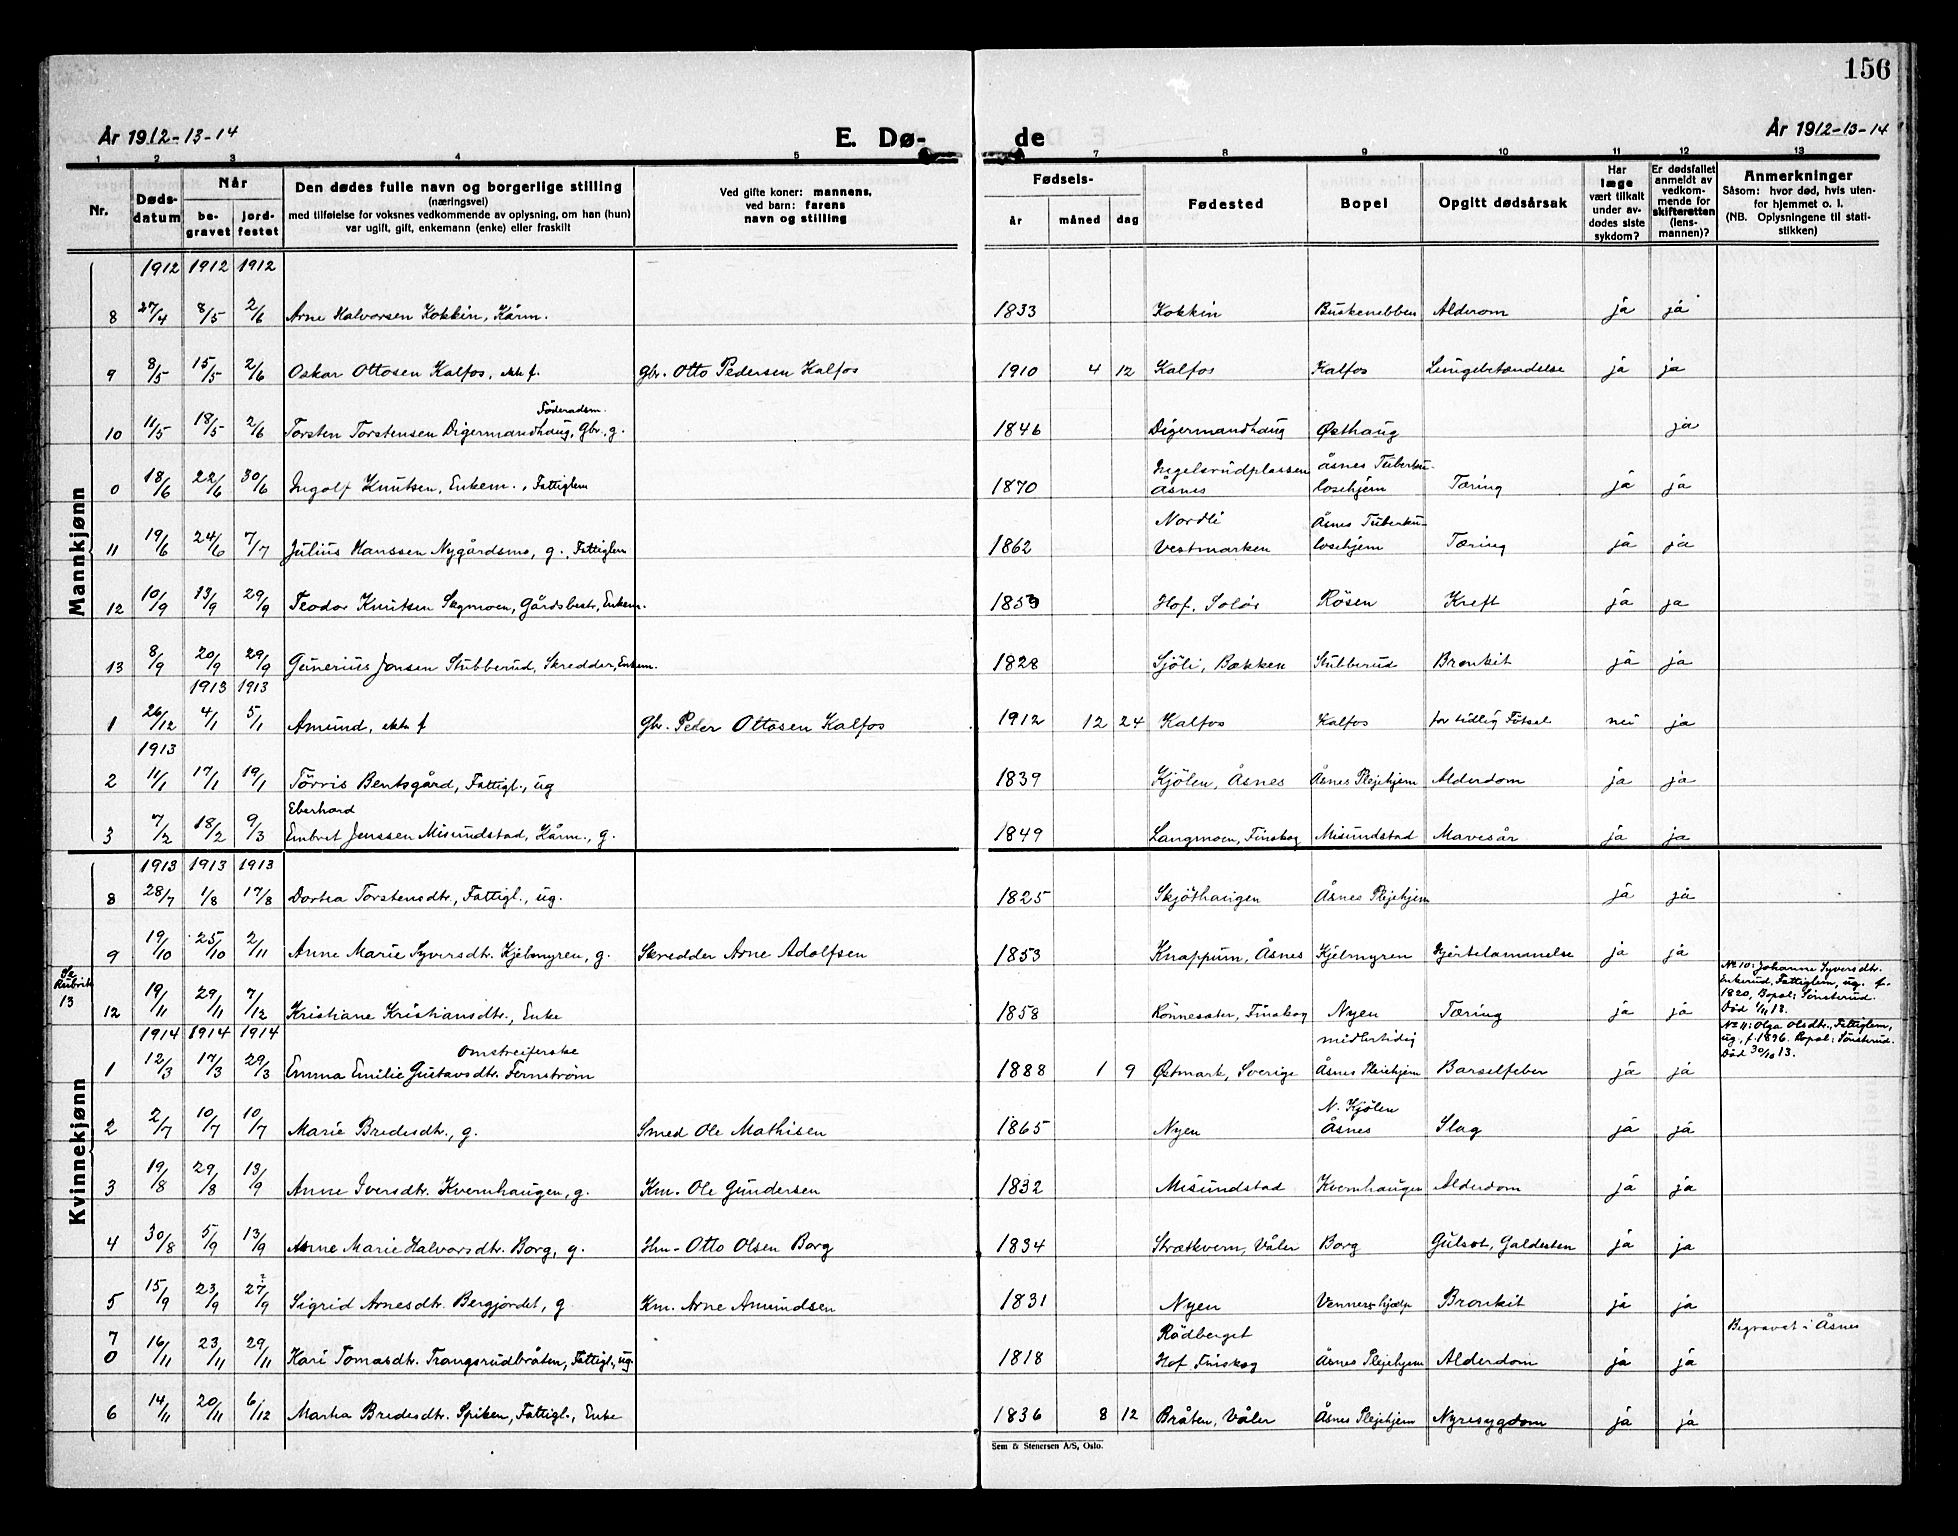 156
År 1912-13-14
E. Dø-
de
År 1912-13-14
1 2 3 4 5 7 8 9 10 11 12 13
Nr.
Døds-
datum
Når
be-
gravet
jord-
festet
Den dødes fulle navn og borgerlige stilling
(næringsvei)
med tilføielse for voksnes vedkommende av oplysning, om han (hun)
var ugift, gift, enkemann (enke) eller fraskilt
Ved gifte koner: mannens,
ved barn: farens
navn og stilling
Fødsels-
år måned dag
Fødested
Bopel
Opgitt dødsårsak
Har
læge
vært tilkalt
under av-
dødes siste
sykdom?
Er dødsfallet
anmeldt av
vedkom-
mende for
skifteretten
(lens-
mannen)?
Anmerkninger
Såsom: hvor død, hvis uten-
for hjemmet o. l.
(NB. Oplysningene til stati-
stikken)
Mannkjønn
1912 1912 1912
8 27/4 8/5 2/6 Arne Halvorsen Kokkin, Kårm. 1833 Kokkin Buskenebben Alderom ja ja
9 8/5 15/5 2/6 Oskar Ottosen Kalfos, ekte f. gbr. Otto Pedersen Kalfos 1910 4 12 Kalfos Kalfos Lungebetændelse ja ja
Föderadsm.
10 11/5 18/5 2/6 Torsten Torstensen Digermandhaug, Gbr., g. 1846 Digermandhaug Østhaug ja
Ingelsrudplassen Åsnes Tuberku-
0 18/6 22/6 30/6 Ingolf Knutsen, Enkem., Fattiglem 1870 Åsnes losehjem Tæring ja ja
Nordli Åsnes Tuberku-
11 19/6 24/6 7/7 Julius Hanssen Nygårdsmo, g., Fattiglem 1862 Vestmarken losehjem Tæring ja ja
12 10/9 13/9 29/9 Teodor Knutsen Skymoen, Gårdsbestr., Enkem. 1859 Hof, Solör Råsen Kreft ja ja
13 8/9 20/9 29/9 Gunerius Jonsen Stubberud, Skredder, Enkem. 1828 Sjöli, Bækken Stubberud Bronkit ja ja
1913 1913
1 26/12 4/1 5/1 Amund, ekte f Gbr. Peder Ottosen Kalfos 1912 12 24 Kalfos Kalfos for tidlig Fötsel nei ja
1913
2 11/1 17/1 19/1 Törris Bentsgård, Fattigl., ug 1839 Kjölen, Åsnes Åsnes Plejehjem Alderdom ja ja
Eberhard
3 7/2 18/2 9/3 Embret Jenssen Misundstad, Kårm., g. 1849 Langmoen, Finskog Misundstad Mavesår ja ja
Kvinnekjønn
1913 1913 1913
8 28/7 1/8 17/8 Dortea Torstensdtr., Fattigl., ug. 1825 Skjöthaugen Åsnes Plejehjem ja ja
9 19/10 25/10 2/11 Anne Marie Syversdtr. Kjelmyren, g. Skredder Arne Adolfsen 1853 Knappum, Åsnes Kjelmyren Hjertelammelse ja ja
Se
Rubrik
13
12 19/11 29/11 7/12 Kristiane Kristiansdtr., Enke 1858 Rönnesæter, Finskog Nyen Tæring ja ja
No 10: Johanne Syversdtr.
Enkerud, Fattiglem, ug. f.
1820, Bopel: Sönsterud.
Död 1/11 13.
No 11: Olga Olsdtr., Fattiglem,
ug., f. 1896. Bopel: Sönsterud.
Död 30/10 13.
1914 1914 1914
Omstreiferske midlertidig
1 12/3 17/3 29/3 Emma Emilie Gustavsdtr. Fernström 1888 1 9 Östmark, Sverige Åsnes Pleiehjem Barselfeber ja ja
N. Kjölen
2 2/7 10/7 10/7 Marie Bredesdtr., g. Smed Ole Mathisen 1865 Nyen Åsnes Slag ja ja
3 19/8 29/8 13/9 Anne Iversdtr. Kvernhaugen, g. Km. Ole Gundersen 1832 Misundstad Kvernhaugen Alderdom ja ja
4 30/8 5/9 13/9 Anne Marie Halvorsdtr. Borg, g. Hm. Otto Olsen Borg 1834 Strætkvern, Våler Borg Gulsot, Galdesten ja ja
5 15/9 23/9 27/9 Sigrid Arnesdtr. Bergjordet, g. Km. Arne Amundsen 1831 Nyen Vennershjælp Bronkit ja ja
7 Rådberget Begravet i Åsnes
0 16/11 23/11 29/11 Kari Tomasdtr. Trangsrudbråten, Fattigl., ug. 1818 Hof Finskog Åsnes Plejehjem Alderdom ja ja
6 14/11 20/11 6/12 Martea Bredesdtr. Spiken, Fattigl., Enke 1836 8 12 Bråten, Våler Åsnes Plejehjem Nyresygdom ja ja
Sem & Stenersen A/S, Oslo.